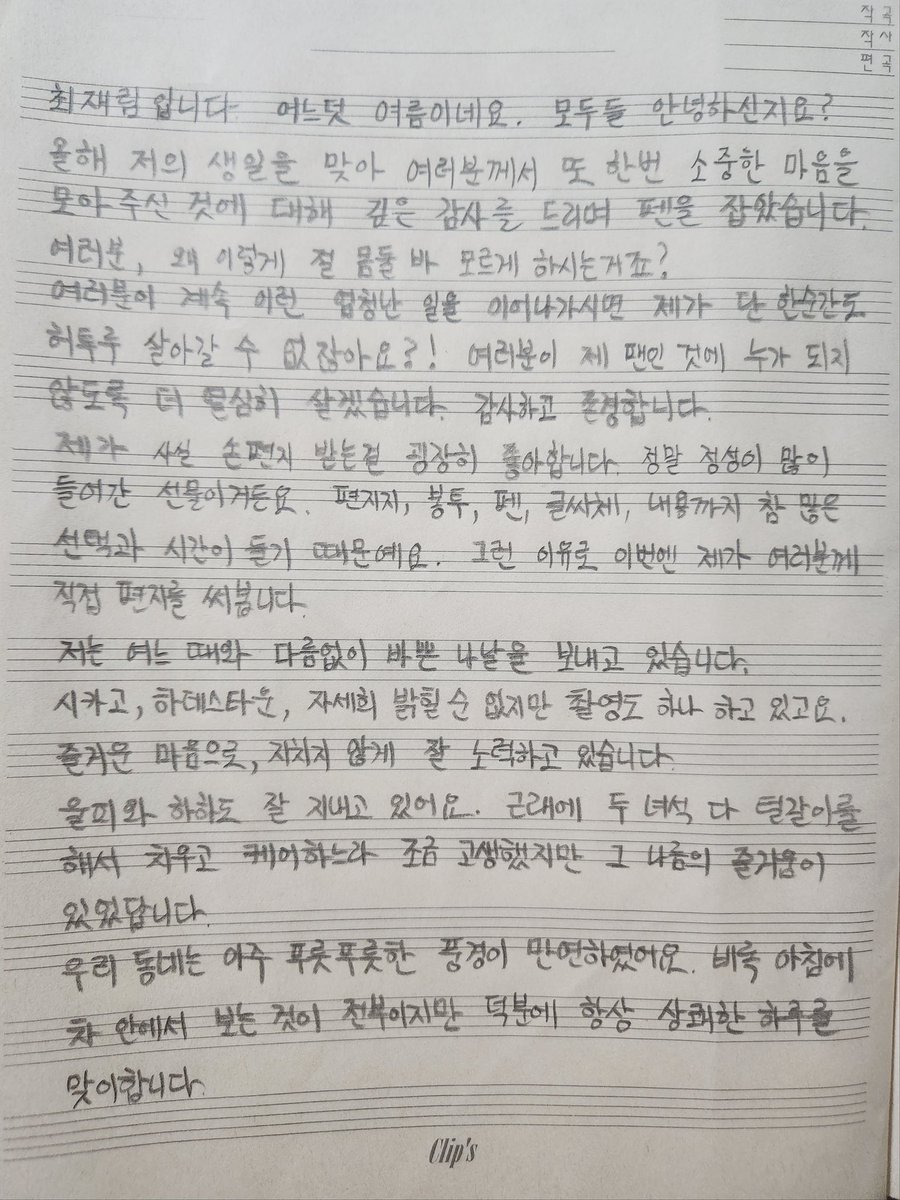 작 곡
작 사
편 곡
최재림입니다 어느덧 여름이네요. 모두들 안녕하신지요?
올해 저의 생일을 맞아 여러분께서 또 한번 소중한 마음을
모아주신 것에 대해 깊은 감사를 드리며 펜을 잡았습니다.
여러분, 왜 이렇게 절 몸둘 바 모르게 하시는거죠?
여러분이 계속 이런 엄청난 일을 이어나가시면 제가 단 한순간도
허투루 살아갈 수 없잖아요?! 여러분이 제 팬인 것에 누가 되지
않도록 더 열심히 살겠습니다. 감사하고 존경합니다.
제가 사실 손편지 받는걸 굉장히 좋아합니다. 정말 정성이 많이
들어간 선물이거든요. 편지지, 봉투, 펜, 글씨체, 내용까지 참 많은
선택과 시간이 들기 때문예요. 그런 이유로 이번엔 제가 여러분께
직접 편지를 써봅니다.
저는 여느 때와 다름없이 바쁜 나날을 보내고 있습니다.
시카고, 하데스타운, 자세희 밝힐 순 없지만 촬영도 하나 하고 있고요.
즐거운 마음으로, 지치지 않게 잘 노력하고 있습니다.
올피와 하하도 잘 지내고 있어요. 근래에 두 녀석 다 털갈이를
해서 치우고 케어하느라 조금 고생했지만 그 나름의 즐거움이
있었답니다.
우리 동네는 아주 푸릇푸릇한 풍경이 만연하였어요. 비록 아침에
차 안에서 보는 것이 전부이지만 덕분에 항상 상쾌한 하루를
맞이합니다.
Clip's